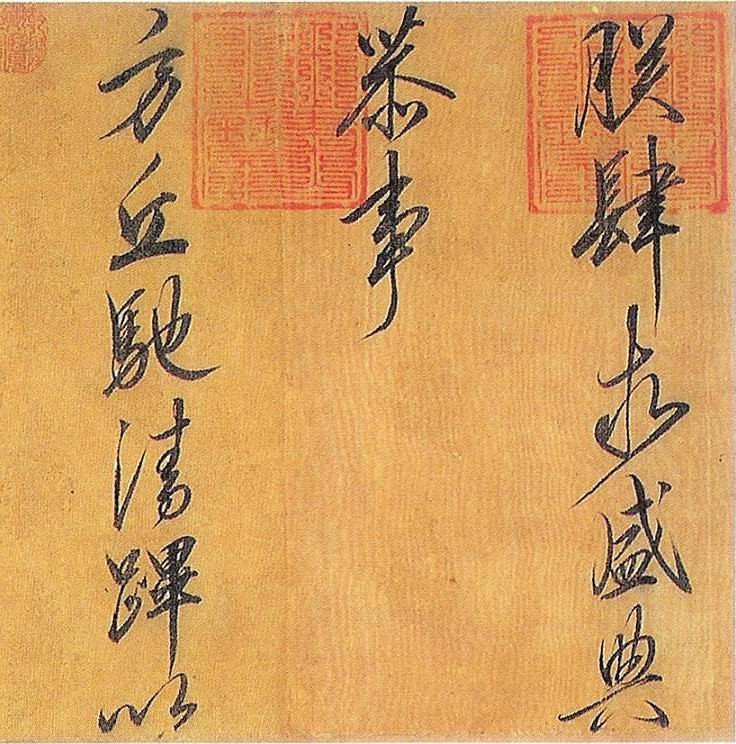 朕肆求盛典
恭事
方丘馳清蹕以